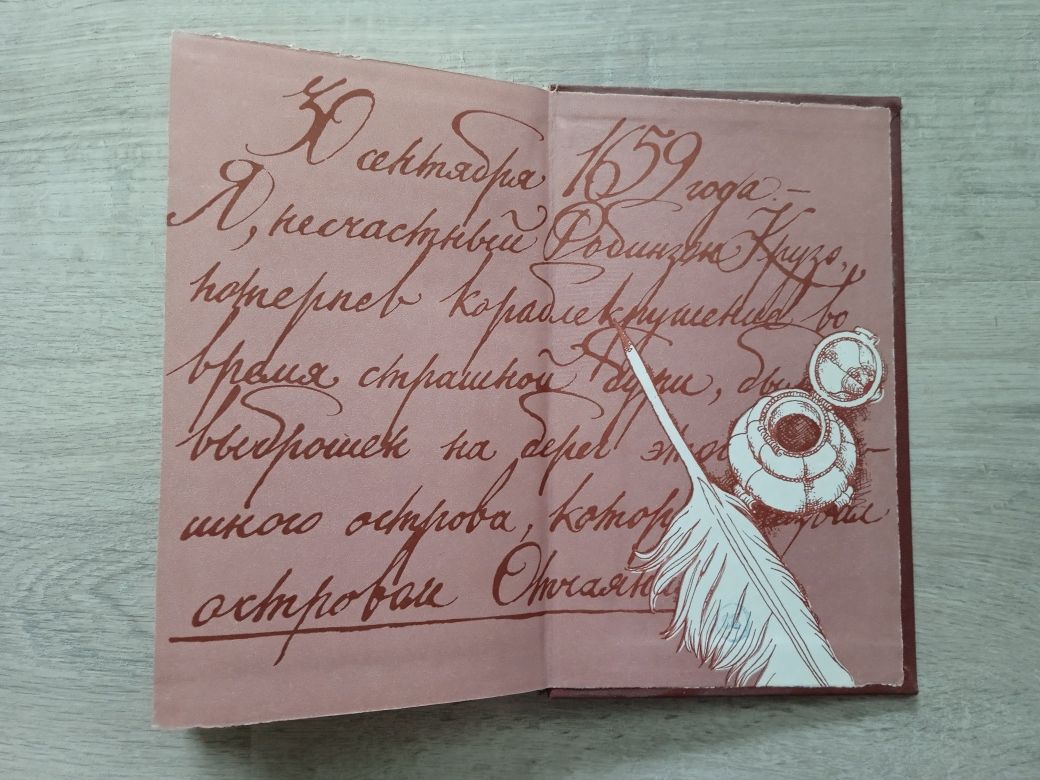 30 сентября 1659 года. –
Я, несчастный Робинзон Крузо,
потерпев кораблекрушение во
время страшной бури, был
выброшен на берег этого
шного острова, который назвал
островом Отчаяния